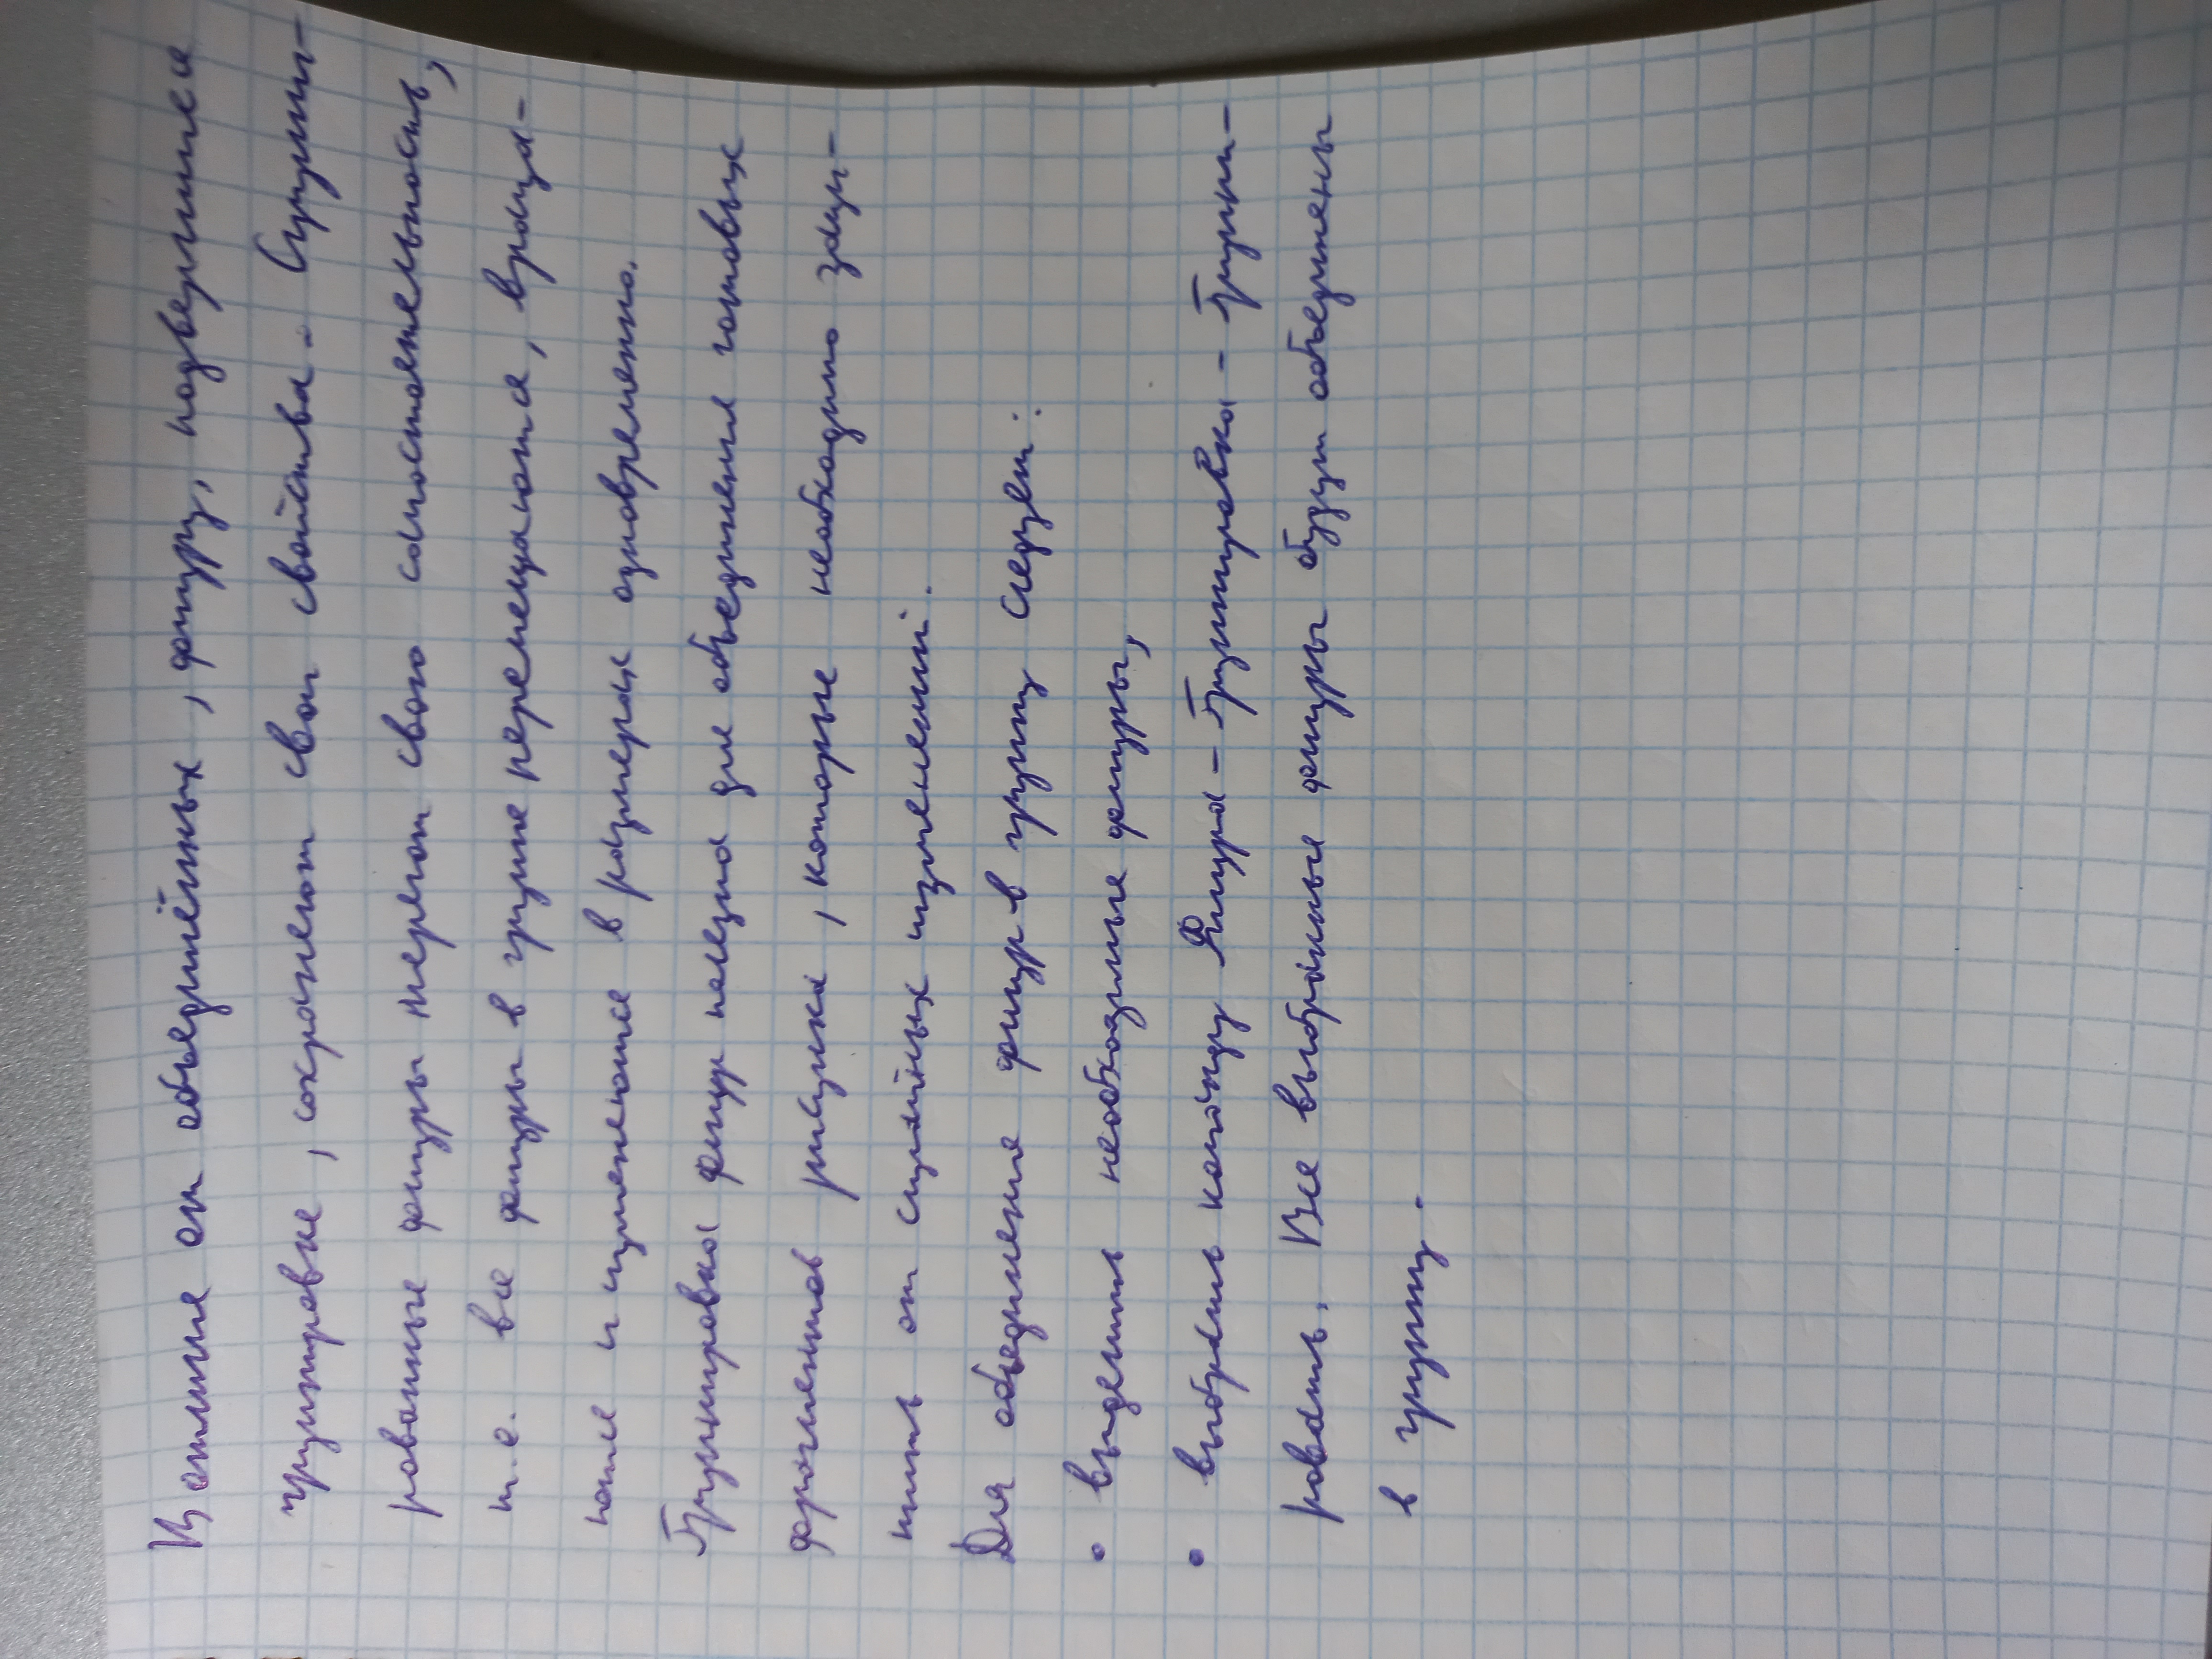 В отличие от объединённых, фигур, подвергшиеся
группировке, сохраняют свои свойства. Сгруппи-
рованные фигуры теряют свою самостоятельность,
т.е. все фигуры в группе перемещаются, враща-
ются и изменяются в размерах одновременно.
Группировка фигур полезна для объединения готовых
фрагментов рисунка, которые необходимо защи-
тить от случайных изменений.
Для объединения фигур в группу следует:
• выделить необходимые фигуры,
• выбрать команду Фигура - Группировка - Группи-
ровать. Все выбранные фигуры будут объединены
в группу.